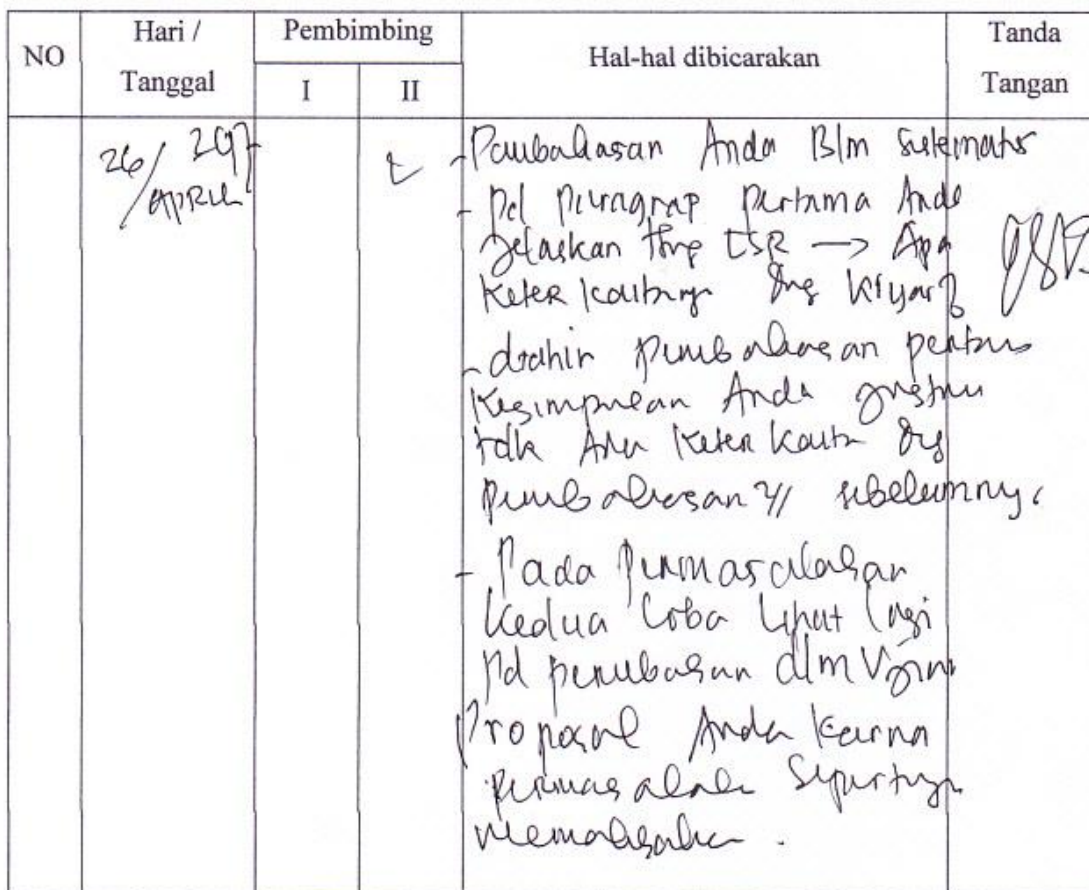 NO
Hari /
Tanggal
Pembimbing
I
II
Hal-hal dibicarakan
Tanda
Tangan
26/APRIL
- Pembahasan Anda Blm sistematis
- Pd paragrap pertama Anda
Jelaskan ttng CSR → Apa
Keterkaitannya dng
- diahir pembahasan
Kesimpulan Anda justru
tdk Ada Keterkaitan dng
pembahasan sebelumnya.
- Pada permasalahan
Kedua Coba Lihat lagi
Pd perubahan dlm Ujian
Proposal Anda Karna
permasalahan Sepertinya